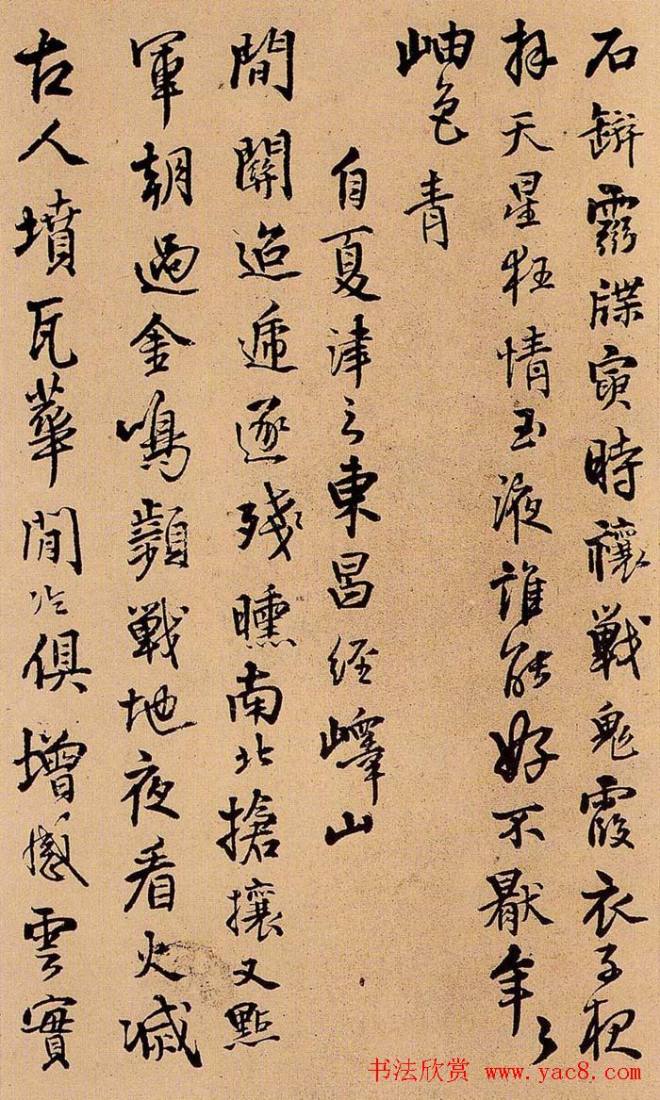 石牒寅時禳戰鬼霞衣子夜
拜天星狂情玉液誰能好不厭年々
岫色青
自夏津之東昌經嶧山
間關迢遞逐殘曛南北搶攘又點
軍朝過金鳴戰地夜看火滅
古人墳瓦華間冷俱增感雲實
书法欣赏 www.yac8.com